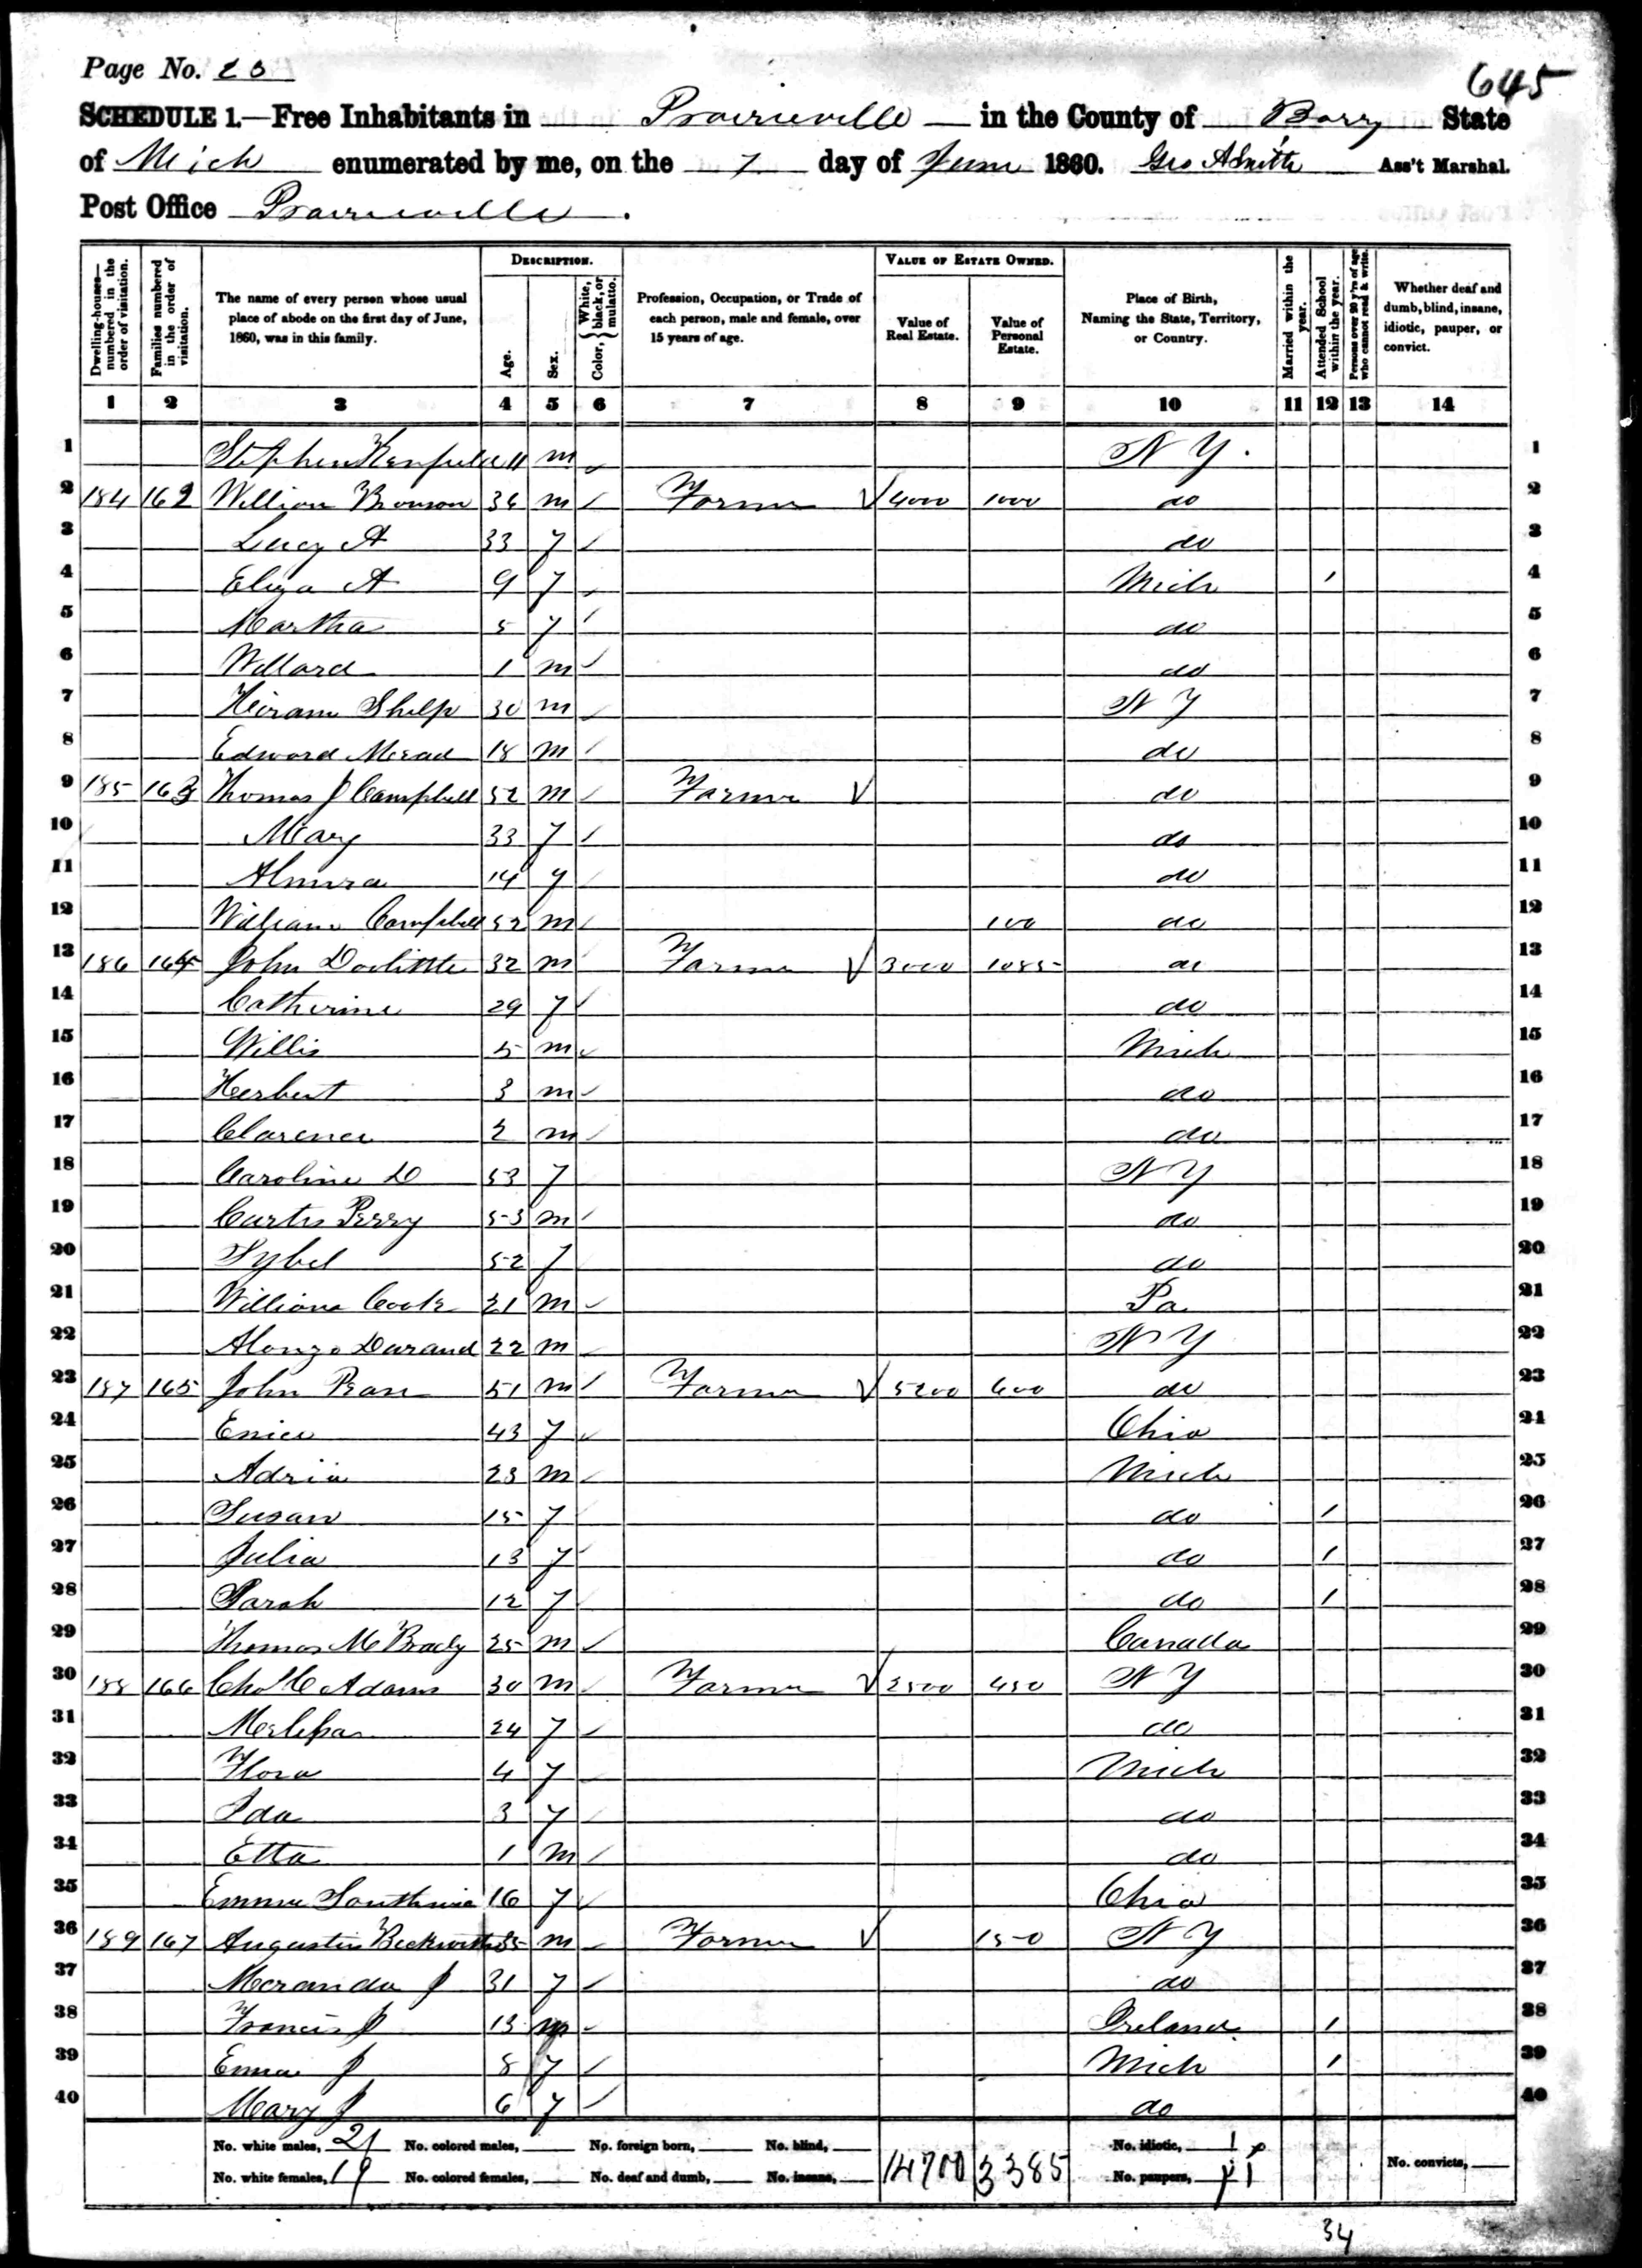 Page No. 23
645
SCHEDULE 1.—Free Inhabitants in Prairieville in the County of Barry State
of Mich enumerated by me, on the 7 day of June 1860. Geo A Smith Ass't Marshal.
Post Office Prairieville.
Dwelling-houses—numbered in the order of visitation.
Families numbered in the order of visitation.
The name of every person whose usual place of abode on the first day of June, 1860, was in this family.
DESCRIPTION.
Age.
Sex.
Color, { White, black, or mulatto.
Profession, Occupation, or Trade of each person, male and female, over 15 years of age.
VALUE OF ESTATE OWNED.
Value of Real Estate.
Value of Personal Estate.
Place of Birth, Naming the State, Territory, or Country.
Married within the year.
Attended School within the year.
Persons over 20 y'rs of age who cannot read & write.
Whether deaf and dumb, blind, insane, idiotic, pauper, or convict.
1 2 3 4 5 6 7 8 9 10 11 12 13 14
1 Stephen 11 m N Y. 1
2 184 162 William Bronson 36 m Farmer 4000 1000 do 2
3 Lucy A 33 f do 3
4 Eliza A 9 f Mich / 4
5 Martha 5 f do 5
6 Willard 1 m do 6
7 Hiram Shelp 30 m N Y 7
8 Edward Mead 18 m do 8
9 185 163 Thomas J Campbell 52 m Farmer do 9
10 Mary 33 f do 10
11 Almira 14 f do 11
12 William Campbell 52 m 100 do 12
13 186 164 John Doolittle 32 m Farmer 3000 1085 do 13
14 Catherine 29 f do 14
15 Willis 5 m Mich 15
16 Herbert 3 m do 16
17 Clarence 2 m do 17
18 Caroline D 53 f N Y 18
19 Curtis Perry 53 m do 19
20 Sybel 52 f do 20
21 William Cook 21 m Pa 21
22 Alonzo Durand 22 m N Y 22
23 187 165 John 51 m Farmer 5200 600 do 23
24 Enice 43 f Ohio 24
25 23 m Mich 25
26 Susan 15 f do / 26
27 Julia 13 f do / 27
28 Sarah 12 f do / 28
29 Thomas McBrady 25 m Canada 29
30 188 166 Chas C Adams 30 m Farmer 2500 450 N Y 30
31 24 f do 31
32 Flora 4 f Mich 32
33 Ida 3 f do 33
34 Etta 1 m do 34
35 Emma 16 f Ohio 35
36 189 167 Augustin Beckwith 35 m Farmer 150 N Y 36
37 Meranda J 31 f do 37
38 Francis J 13 m Ireland / 38
39 Emma J 8 f Mich / 39
40 Mary J 6 f do 40
No. white males, 21 No. colored males, No. foreign born, No. blind, 14700 3385 No. idiotic,
No. white females, 19 No. colored females, No. deaf and dumb, No. insane, No. paupers, No. convicts,
34